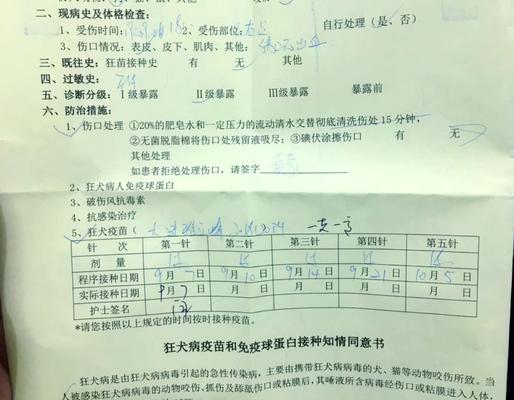 二、现病史及体格检查：
1、受伤时间： 2、受伤部位： 自行处理（是、否）
3、伤口情况：表皮、皮下、肌肉、其他：
三、既往史：狂苗接种史 有 无 其他
四、过敏史：
五、诊断分级：I级暴露 II级暴露 III级暴露 暴露前
六、防治措施：
1、伤口处理 ①20%的肥皂水和一定压力的流动清水交替彻底清洗伤处15分钟，
②无菌脱脂棉将伤口处残留液吸尽；③碘伏涂擦伤口 有 无
其他处理
如患者拒绝处理伤口，请签字
2、狂犬病人免疫球蛋白
3、破伤风抗毒素
4、抗感染治疗
5、狂犬疫苗（
针 次 第一针 第二针 第三针 第四针 第五针
剂 量
程序接种日期 9月7日 9月10日 9月14日 9月21日 10月5日
实际接种日期 9月7日 月 日 月 日 月 日 月 日
护士签名
*请您按照以上规定的时间按时接种疫苗。
狂犬病疫苗和免疫球蛋白接种知情同意书
狂犬病是由狂犬病病毒引起的急性传染病，主要由携带狂犬病病毒的犬、猫等动物咬伤所致。当
人被感染狂犬病病毒的动物咬伤、抓伤及舔舐伤口或粘膜后，其唾液所含病毒经伤口或粘膜进入人体，